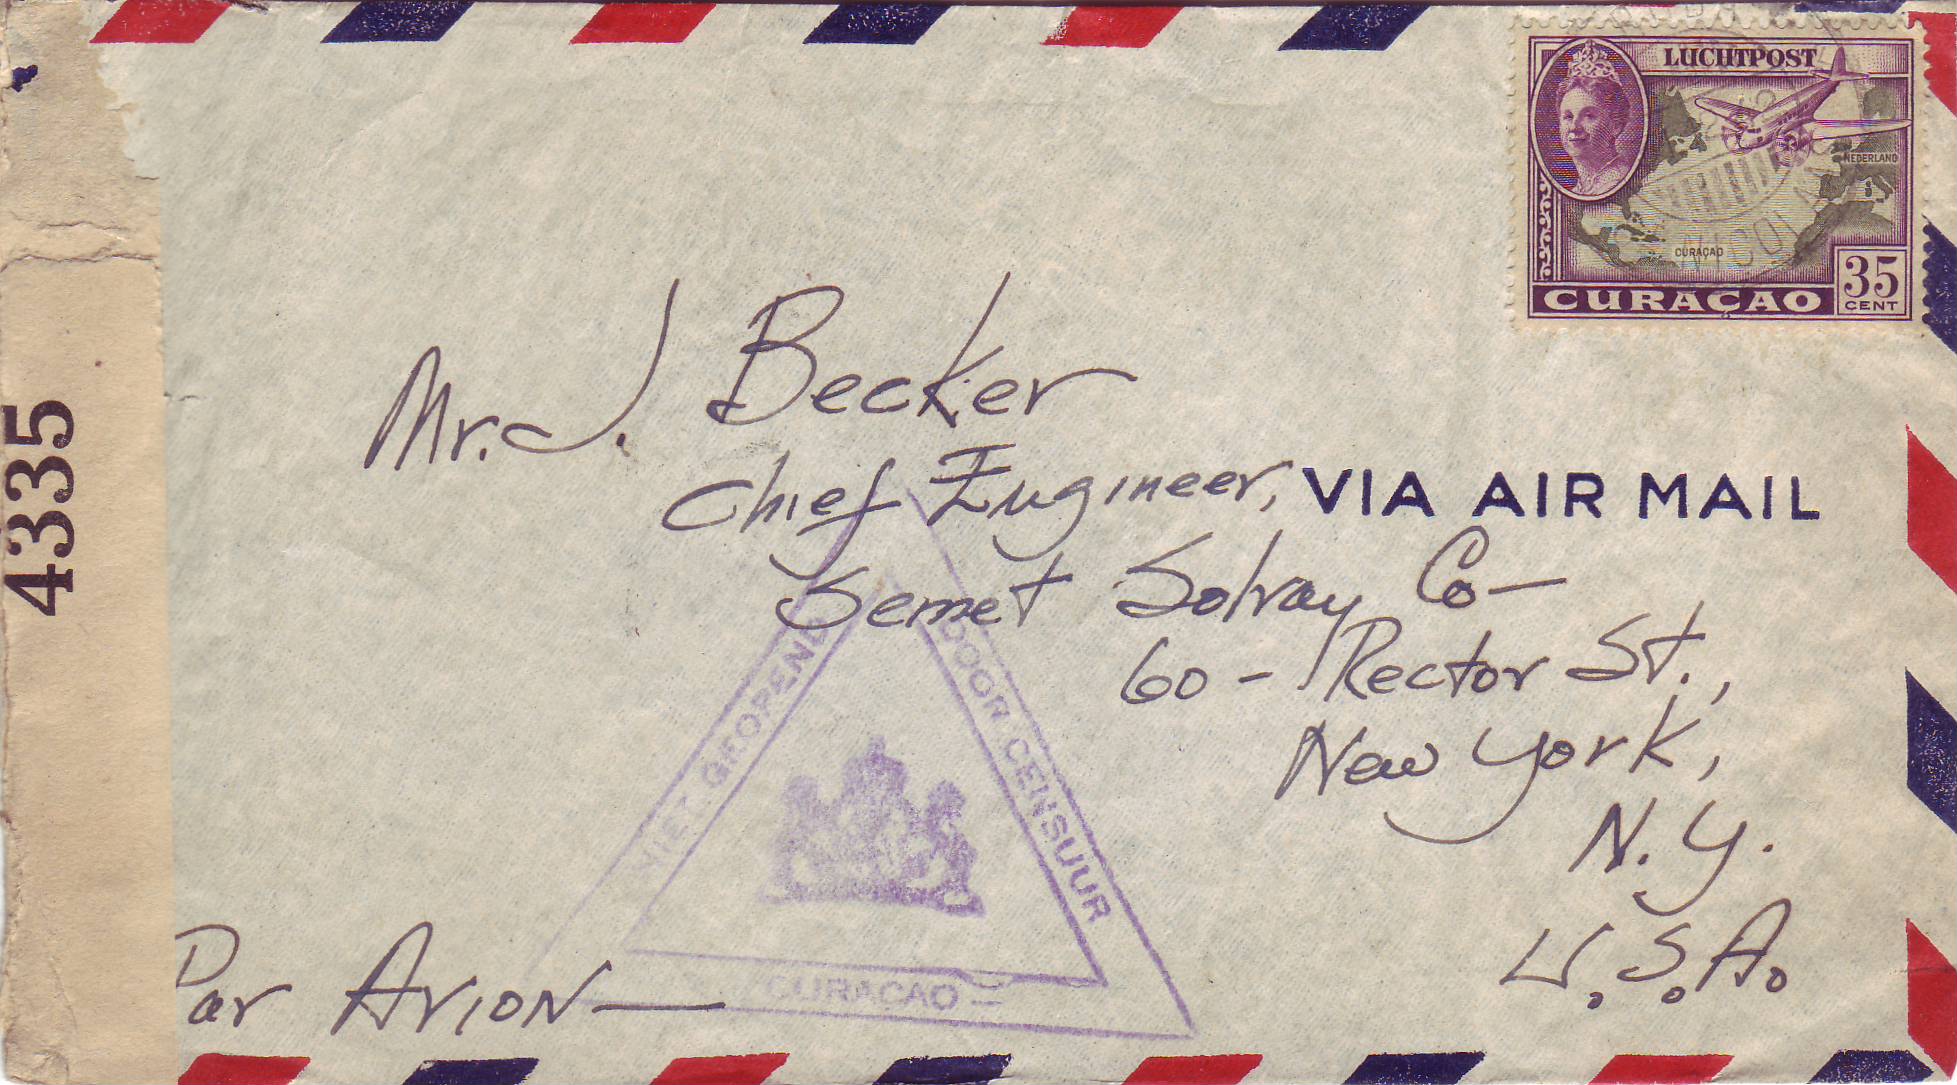 LUCHTPOST
NEDERLAND
CURAÇAO
35
CENT
CURAÇAO
4335
Mr. J. Becker
Chief Engineer,
VIA AIR MAIL
Semet Solvay Co-
60 - Rector St.,
New York,
N. Y.
U.S.A.
Par Avion
NIET GEOPEND
DOOR CENSUUR
CURACAO